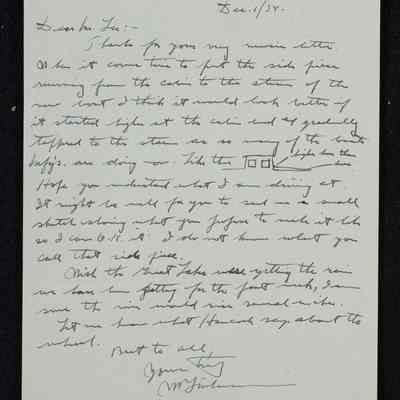 Dec. 1/34.
Dear Mr. Lee:-
Thanks for your very nice letter.
When it comes time to put the side piece
running from the cabin to the stern of the
new boat I think it would look better if
it started higher at the cabin end & gradually
tapped to the stern as so many of the boats
are doing now. Like this higher here than
here
Hope you understand what I am driving at.
It might be well for you to send me a small
sketch showing what you propose to make it like
so I can O.K. it. I do not know what you
call that side piece.
With the Great Lakes getting the rain
we have been getting for the past week, I am
sure the river would rise several inches.
Let me know what Hancock says about the
wheel.
Best to all,
Yours truly